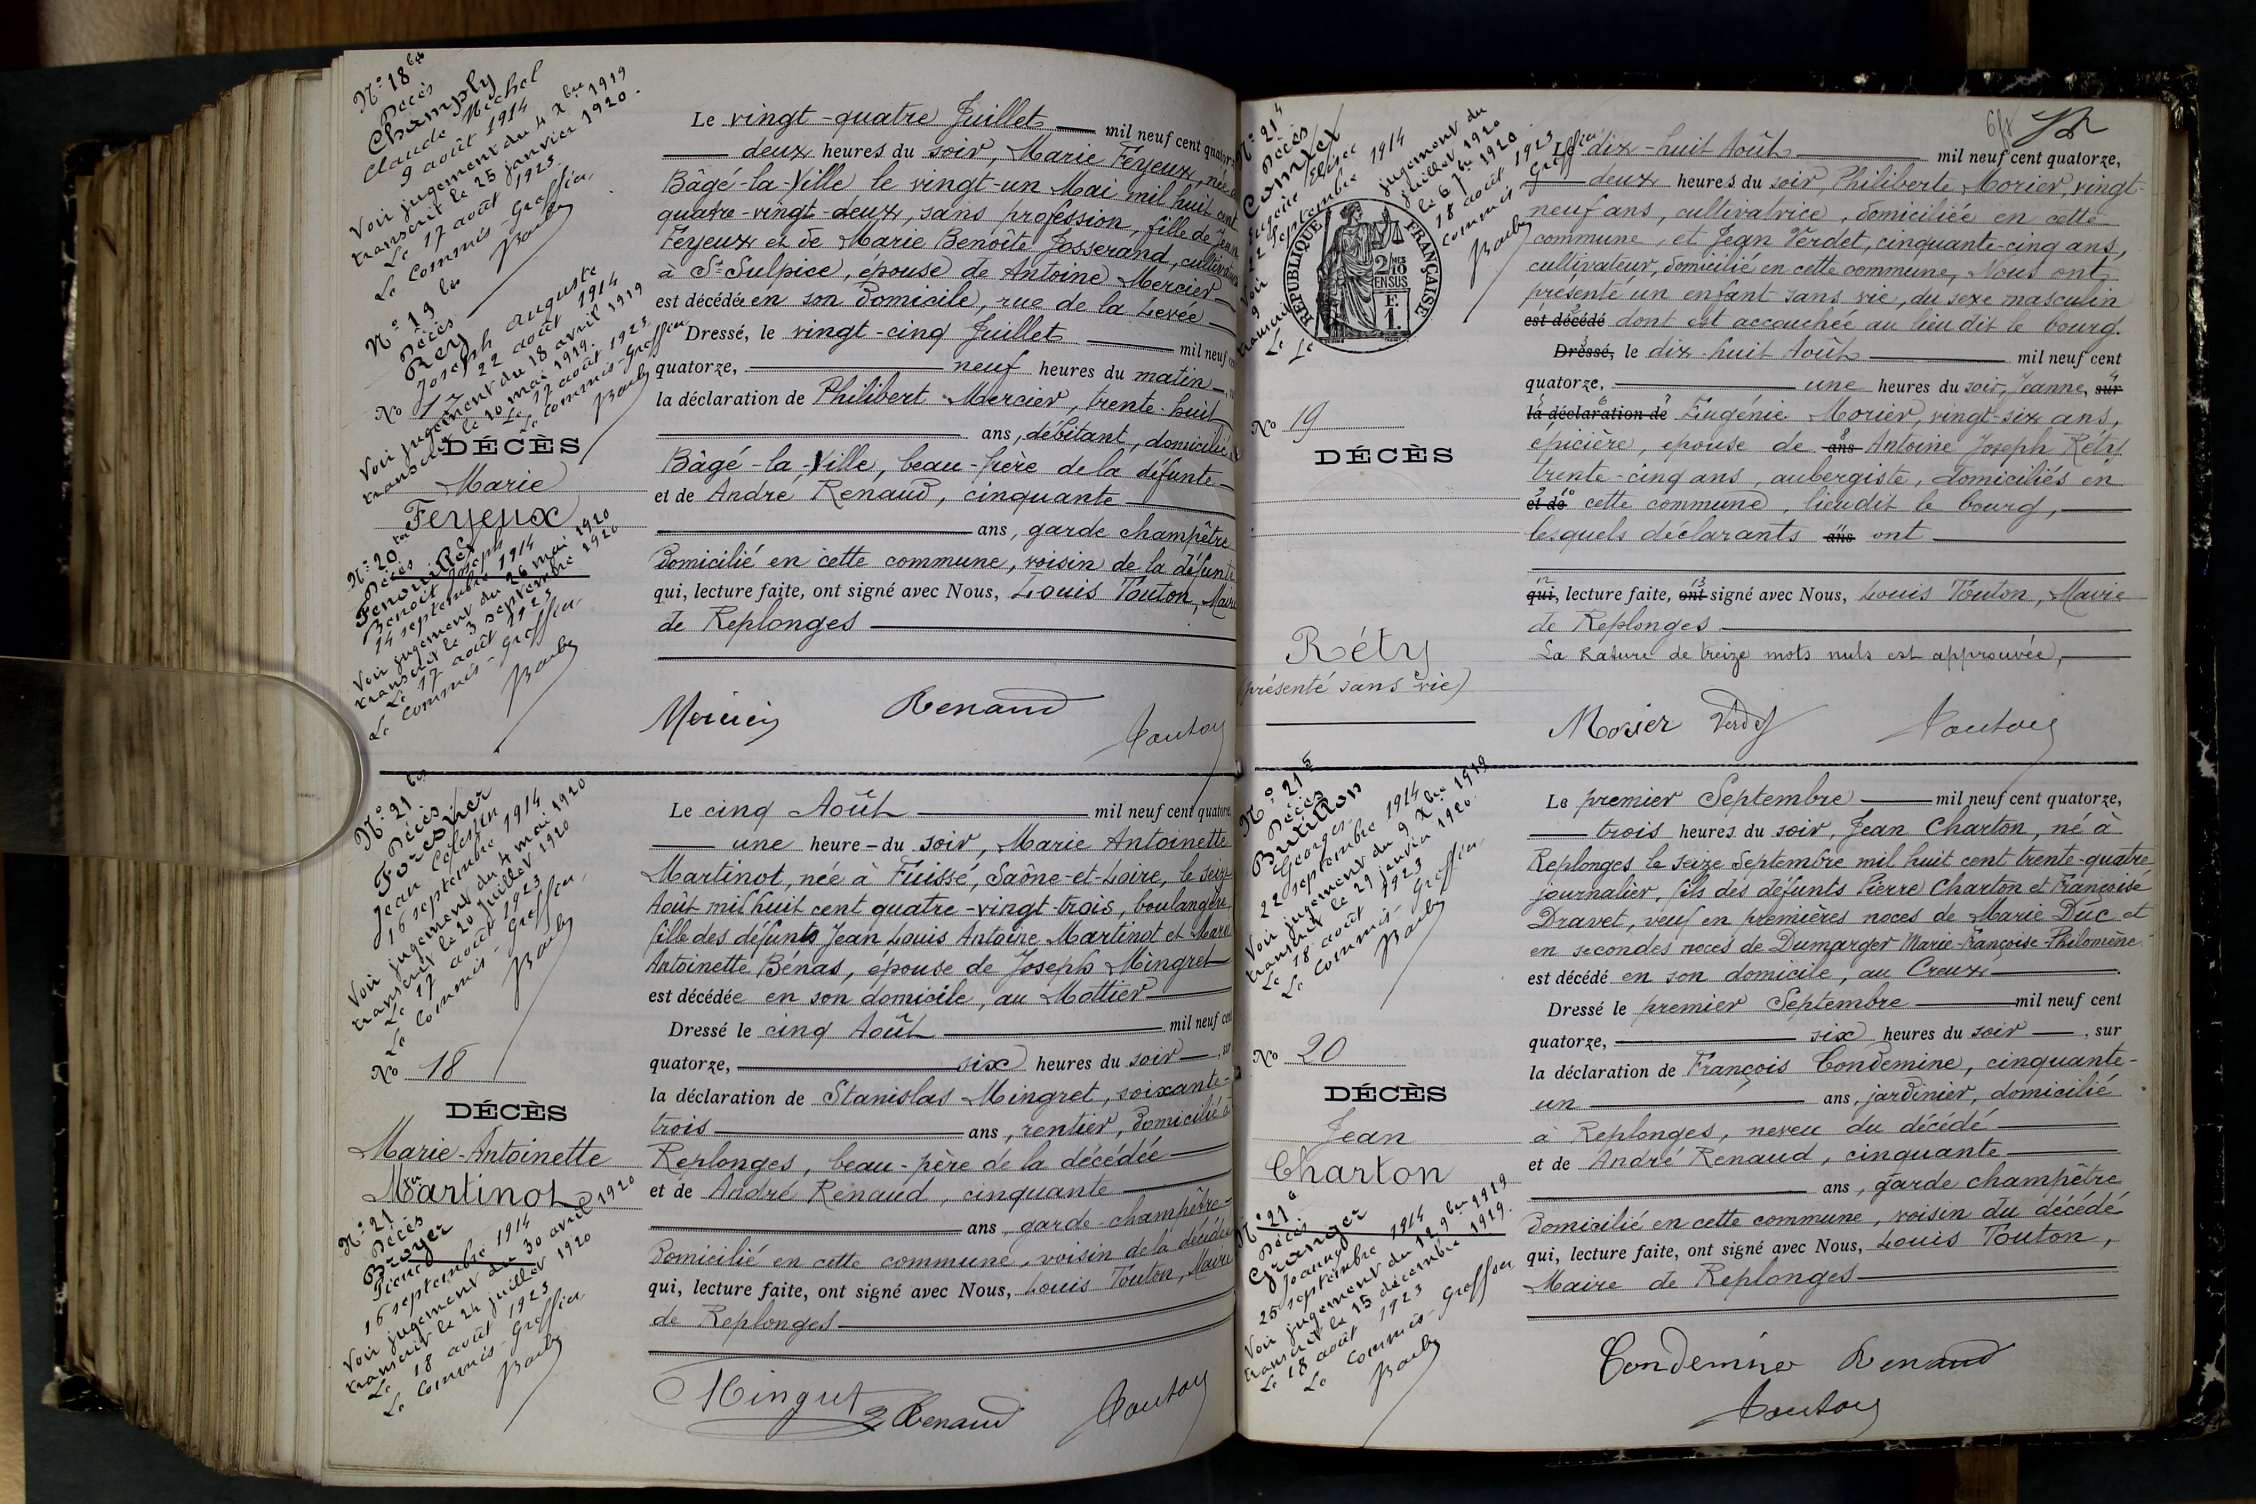 N° 18 bis
Décès
Champly
Claude Michel
9 août 1914
Voir jugement du 4 Xbre 1919
transcrit le 25 janvier 1920.
Le 17 août 1923.
Le Commis-Greffier,
Barby
N° 19 bis
Décès
Rey
Joseph auguste
22 août 1914
Voir jugement du 18 avril 1919
transcrit le 10 mai 1919.
Le 17 août 1923
Le Commis-Greffier
Barby
No 17
DÉCÈS
Marie
Feyeux
N° 20 ter
Décès
Fenouillet
Benoit Joseph
14 septembre 1914
Voir jugement du 26 mai 1920
transcrit le 3 septembre 1920
Le 17 août 1923
Le Commis-Greffier
Barby
Le vingt-quatre Juillet mil neuf cent quatorze,
deux heures du soir, Marie Feyeux, née à
Bâgé-la-Ville le vingt-un Mai mil huit cent
quatre-vingt-deux, sans profession, fille de Jean
Feyeux et de Marie Benoîte Josserand, cultivateurs
à St Sulpice, épouse de Antoine Mercier
est décédée en son domicile, rue de la Levée
Dressé, le vingt-cinq Juillet mil neuf cent
quatorze, neuf heures du matin, sur
la déclaration de Philibert Mercier, trente-huit
ans, débitant, domicilié à
Bâgé-la-Ville, beau-frère de la défunte
et de André Renaud, cinquante
ans, garde champêtre
domicilié en cette commune, voisin de la défunte
qui, lecture faite, ont signé avec Nous, Louis Touton, Maire
de Replonges
Mercier Renaud Touton
N° 21 bis
Décès
Foresties
Jean Célestin
16 septembre 1914
Voir jugement du 4 mai 1920
transcrit le 20 juillet 1920
Le 17 août 1923
Le Commis-Greffier,
Barby
No 18
DÉCÈS
Marie-Antoinette
Martinot
N° 21 ter
Décès
Broyer
Pierre
16 septembre 1914
Voir jugement du 30 avril 1920
transcrit le 24 juillet 1920
Le 18 août 1923
Le Commis-Greffier
Barby
Le cinq Août mil neuf cent quatorze
une heure du soir, Marie Antoinette
Martinot, née à Fuissé, Saône-et-Loire, le seize
Août mil huit cent quatre-vingt-trois, boulangère,
fille des défunts Jean Louis Antoine Martinot et Marie
Antoinette Bénas, épouse de Joseph Mingret
est décédée en son domicile, au Mottier
Dressé le cinq Août mil neuf cent
quatorze, six heures du soir, sur
la déclaration de Stanislas Mingret, soixante-
trois ans, rentier, domicilié à
Replonges, beau-père de la décédée
et de André Renaud, cinquante
ans, garde-champêtre
domicilié en cette commune, voisin de la décédée
qui, lecture faite, ont signé avec Nous, Louis Touton, Maire
de Replonges
Mingret Renaud Touton
N° 21 4
Décès
Comtet
Eugène Elisée
22 septembre 1914
Voir jugement du
9 juillet 1920
transcrit le 6 7bre 1920
Le 18 août 1923
Le Commis Greffier
Barby
RÉPUBLIQUE FRANÇAISE
2/10 ES
EN SUS
F.
1.
No 19
DÉCÈS
Réty
(présenté sans vie)
Le dix-huit Août mil neuf cent quatorze,
deux heures du soir, Philiberte Morier, vingt-
neuf ans, cultivatrice, domiciliée en cette
commune, et Jean Verdet, cinquante-cinq ans,
cultivateur, domicilié en cette commune, Nous ont
présenté un enfant sans vie, du sexe masculin
est décédé dont est accouchée au lieu dit le bourg.
Dressé, le dix-huit Août mil neuf cent
quatorze, une heures du soir, Jeanne, sur
la déclaration de Eugénie Morier, vingt-six ans,
épicière, épouse de ans Antoine Joseph Réty
trente-cinq ans, aubergiste, domiciliés en
et de cette commune, lieu dit le bourg,
lesquels déclarants ans ont
qui, lecture faite, ont signé avec Nous, Louis Touton, Maire
de Replonges
La Rature de treize mots nuls est approuvée,
Morier Verdet Touton
N° 21 5
Décès
Butillon
Georges
22 septembre 1914
Voir jugement du 9 Xbre 1919
transcrit le 29 janvier 1920.
Le 18 août 1923
Le Commis-Greffier
Barby
No 20
DÉCÈS
Jean
Charton
N° 21 6
Décès
Granger
Joanny
25 septembre 1914
Voir jugement du 12 9bre 1919
transcrit le 15 décembre 1919.
Le 18 août 1923
Le Commis-Greffier
Barby
Le premier Septembre mil neuf cent quatorze,
trois heures du soir, Jean Charton, né à
Replonges, le seize Septembre mil huit cent trente-quatre
journalier, fils des défunts Pierre Charton et Françoise
Dravet, veuf en premières noces de Marie Duc et
en secondes noces de Dumarger Marie-Françoise-Philomène
est décédé en son domicile, au Creux
Dressé le premier Septembre mil neuf cent
quatorze, six heures du soir, sur
la déclaration de François Condemine, cinquante-
un ans, jardinier, domicilié
à Replonges, neveu du décédé
et de André Renaud, cinquante
ans, garde champêtre
domicilié en cette commune, voisin du décédé
qui, lecture faite, ont signé avec Nous, Louis Touton,
Maire de Replonges
Condemine Renaud
Touton